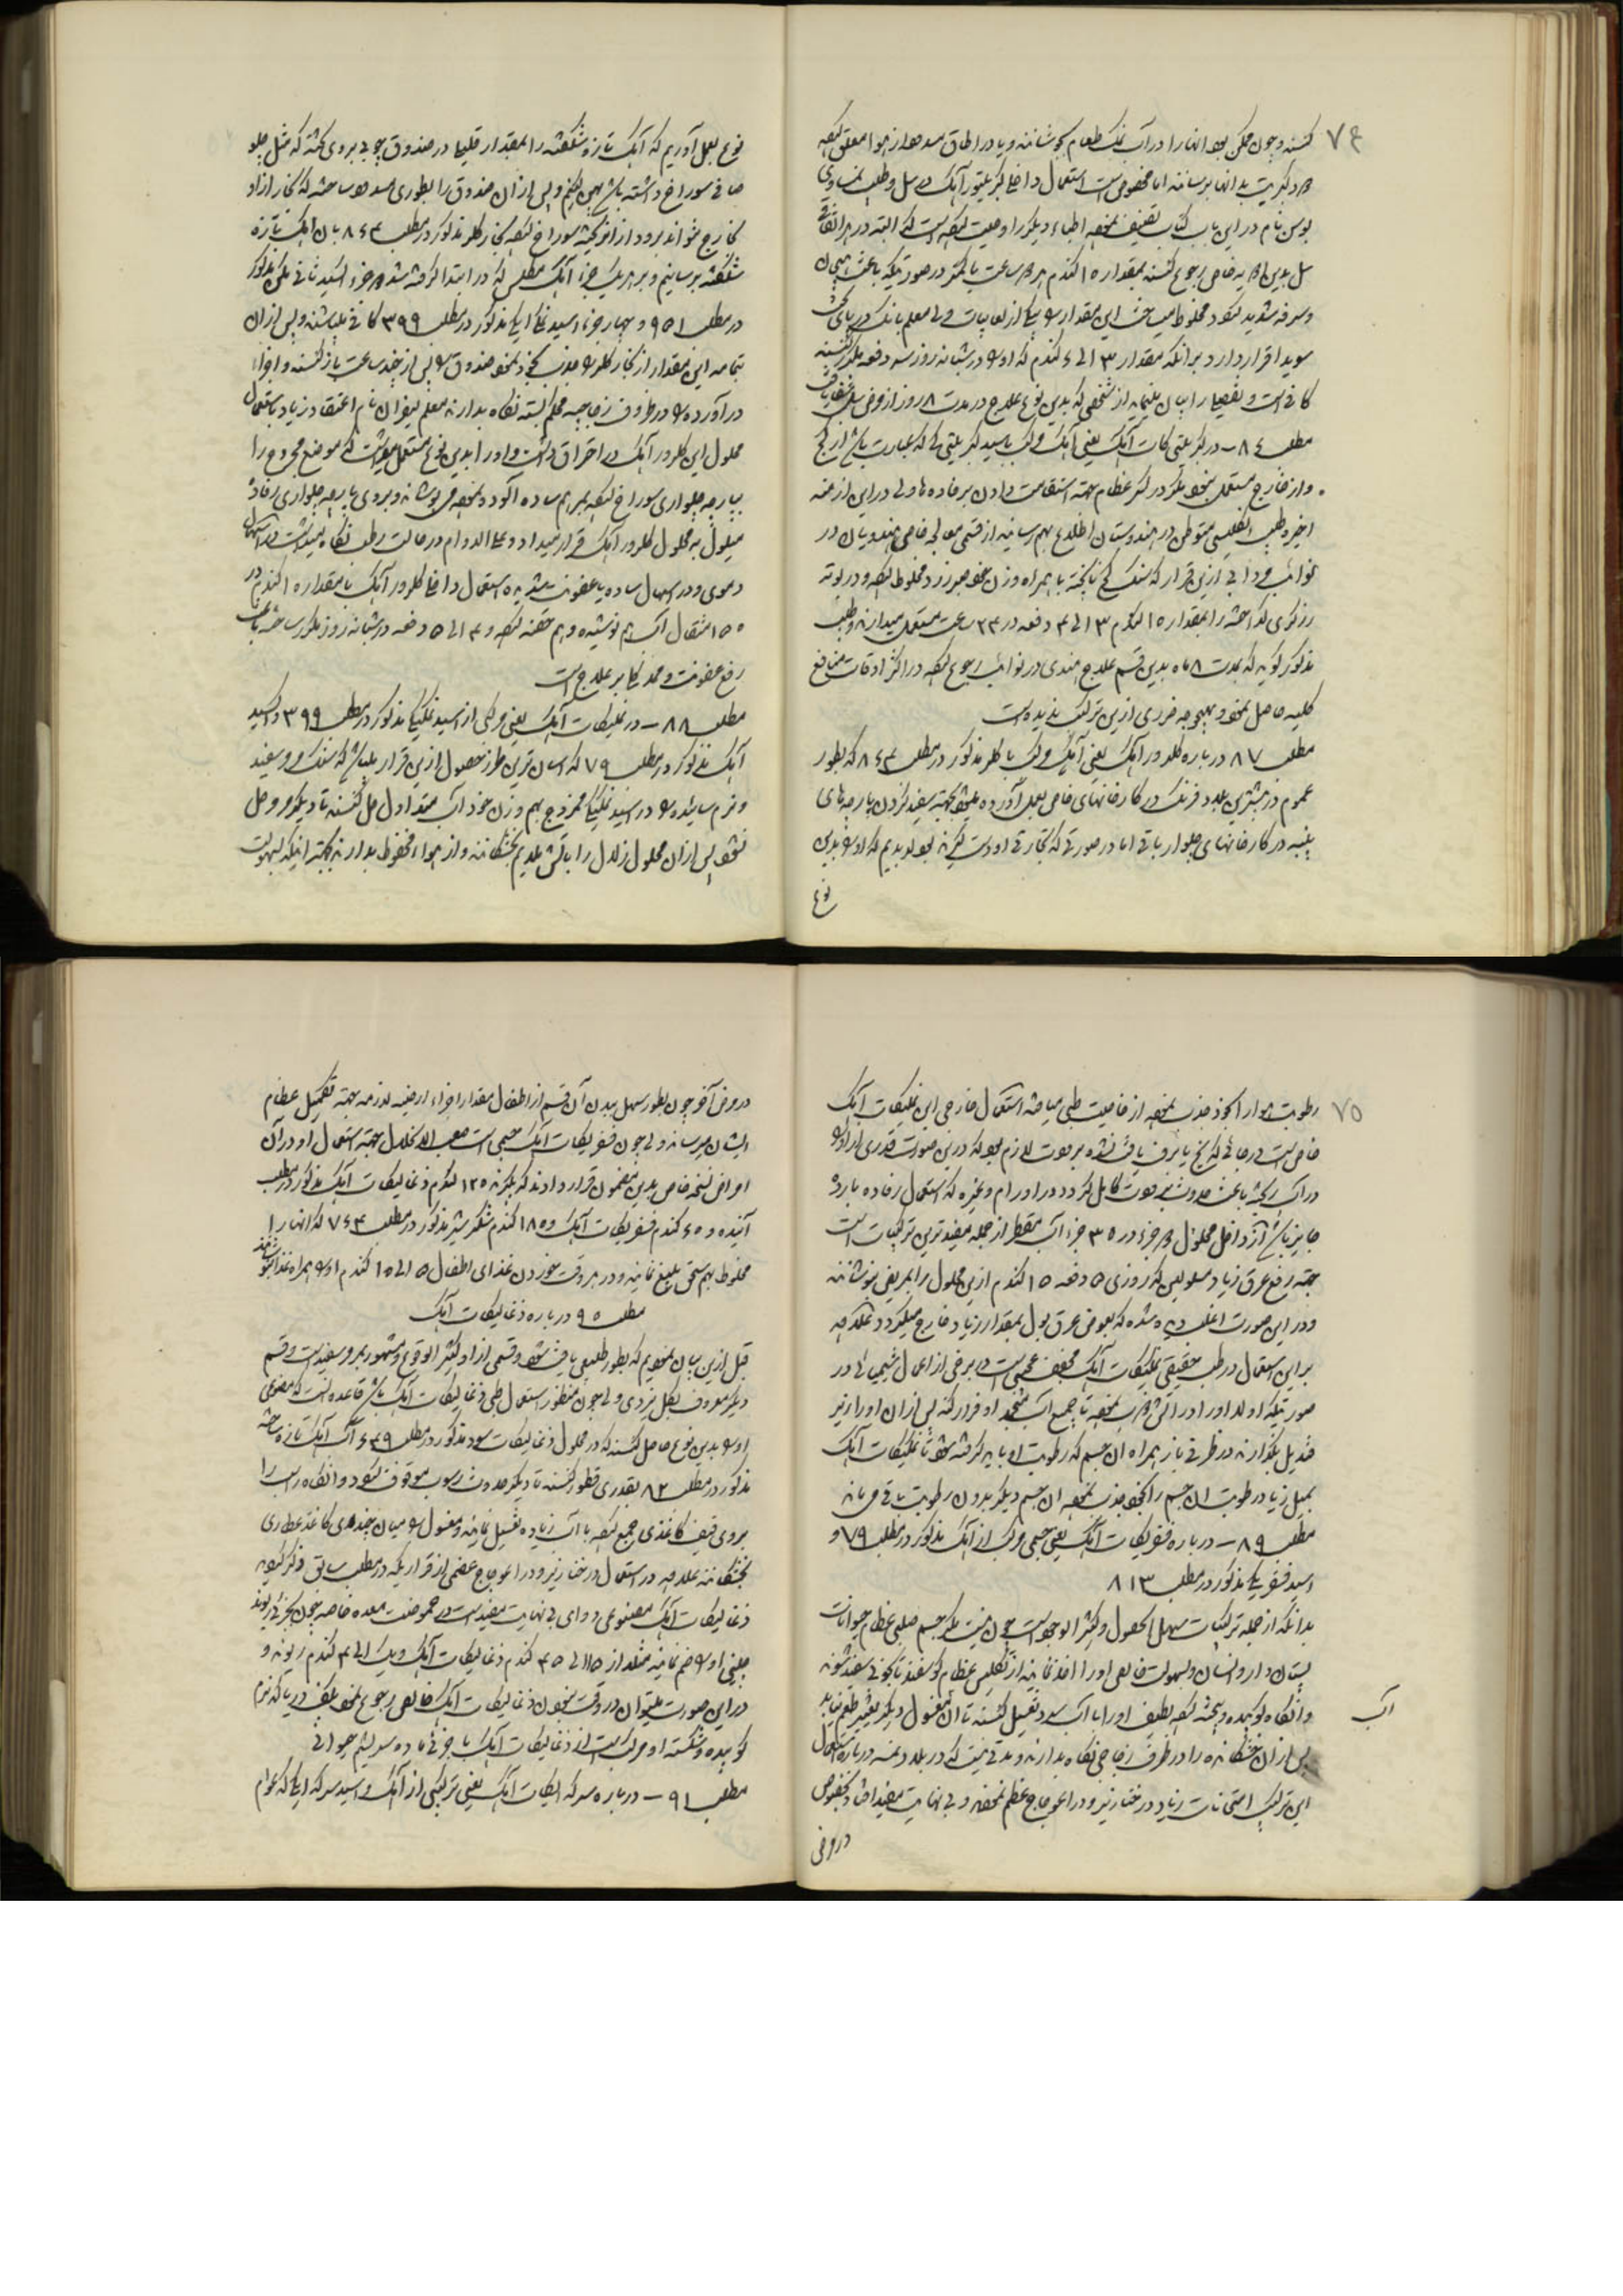 ۷۴
کنند و چون ممکن بود انها را در آب نمک طعام بجوشانند و یا در اطاق مسدود از هوا معلق نموده
بوسن نام در این باب کتاب تصنیف نموده اطباء دیگر را وصیت نموده است که البته در هر اتفاق
سل بدین دوا خاص رجوع کنند بمقدار ۱۵ گندم هر دو ساعت یا کمتر در صورتیکه باعث هیجان
و سرفه شدید نگردد مخلوط میساختند این مقدار را از لعابیات ولی معلم بانک در پای تخت
سوید اقرار دارد بر انکه مقدار ۳ الی ۶ گندم که او را در شبانه روز سه دفعه بکار
مطلب ۸۶ – در کبریتی کات آهک یعنی آهک مرکب باسید کبریتی که عبارت باشد از گچ
و از خارج مستعمل نمیشود مگر در کسر عظام بجهة استقامت دادن بر رفاده ها ولی در این ازمنه
اخیره طبیب انگلیسی متوطن در هندوستان اطلاع بهم رسانید از قسمی معالجه خاص هندویان در
نوائب و در این ازین قرار که سنگ گچ ناپخته با همراه وزن خود صبر زرد مخلوط نموده و در بوته
زرگری گداخته را بمقدار ۱۵ گندم ۳ الی ۴ دفعه در ۲۴ ساعت مستعمل میدارند و طبیب
مذکور گوید که بمدت ۸ ماه بدین قسم علاج هندی در نوائب رجوع نموده در اکثر اوقات منافع
کلیه حاصل نمود و بهیچوجه ضرری ازین ترکیب ندیده است
مطلب ۸۷ درباره کلرور آهک یعنی آهک مرکب با کلر مذکور در مطلب ۸۶۴ که بطور
عموم در بیشترین بلاد فرنگ در کارخانهای خاص بعمل آورده میشود بجهة سفید کردن پارچه های
پنبه در کارخانهای چلوار بافی اما در صورتی که تجارتی او دست نگیرند بهتر بود بدیم که او را بدین
نوع
نوع بعمل آوریم که آهک تازه شکفته را بمقدار قلیل در صندوق چوبی بروی تخته که مثل چلو
صافی سوراخ داشته باشد پهن کنیم و پس از ان صندوق را بطوری مسدود ساخته که بخار ازاو
بخارج نتواند برود از انجا که سوراخ نموده بخار کلر مذکور در مطلب ۸۶۴ بان آهک تازه
شکفته برسانیم و بر هر یک جزء آهک مطلس که در ابتدا گرفته شد دو جزء اکسید ثانی منگنز مذکور
در مطلب ۹۵۱ و چهار جزء اسید نمکی مذکور در مطلب ۳۹۹ کافی میباشد و پس ازان
بتمامه این مقدار از بخار کلر را جذب بخود نمود صندوق را پس از چند ساعت باز کنند و اجزاء
در آورده را در ظروف زجاجیه محکم بسته نگاه بدارند معلم لیفران نام اعتقاد زیاد باستعمال
محلول این کلرور آهک در احتراق داشت و او را بدین نوع مستعمل میداشت که موضع مجروح را
بپارچه چلواری سوراخ نموده بمرهم ساده آلوده نموده میپوشانند و بروی پارچه چلواری رفاده
مبلول به محلول کلرور آهک قرار میداد و علی الدوام در حالت رطب نگاه میداشت در اسهال
دموی و در اسهال ساده با عفونت شدیده استعمال داخلی کلرور آهک با مقدار ۱۵ گندم در
۱۵۰ مثقال آب هم نوشیده و هم حقنه نموده و ۴ الی ۵ دفعه در شبانه روز مکرر ساخته باعث
رفع عفونت و ممد کلی بر علاج است
مطلب ۸۸ – در نمکیکات آهک یعنی مرکبی از اسید نمکی مذکور در مطلب ۳۹۹ و اکسید
آهک مذکور در مطلب ۷۹ که اسان ترین طرز حصول ازین قرار میباشد که سنگ مرمر سفید
و نرم سائیده را در اسید نمکی ممزوج بهم وزن خود آب متداول حل کنند تا دیگر مرمر حل
نشود پس ازان محلول زلال را باتش ملایم بخشکانند و از هوا محفوظ بدارند بجهة انکه بسهولت
۷۵
رطوبت هوا را بخود جذب نموده از خاصیت طبی میباشد استعمال خارجی این نمکیکات آهک
خاص است در جائی که یخ یا برف یافت نشده برودت لازم بود که درین صورت قدری از او را
در آب ریخته باعث حدوث برودت کامل گردد در اورام و غیره که استعمال رفاده بارده
جایز باشد از داخل محلول دو جزء در ۳۵ جزء آب مقطر از جمله مفیدترین ترکیبات است
بجهة رفع عرق زیاد مسلولین که روزی ۵ دفعه ۱۵ گندم ازین محلول را بمریض بنوشانند
و در این صورت اغلب دیده شده که بعوض عرق بول بمقدار زیاد خارج میگردد علاوه
بر این استعمال در طب حقیقی نمکیکات آهک مجفف عجیبی است در برخی از اعمال شیمیائی در
صورتیکه اولا او را در آتش ذوب نموده تا جمیع آب منجمد او فرار کند پس ازان او را زیر
قندیل بگذارند در ظرفی باز همراه ان جسم که رطوبت او باید گرفته شود تا نمکیکات آهک
بمیل زیاد رطوبت ان جسم را بخود جذب نموده ان جسم دیگر بدون رطوبت باقی میماند
مطلب ۸۹ – درباره فسفریکات آهک یعنی جسمی مرکب از آهک مذکور در مطلب ۷۹ و
اسید فسفریک مذکور در مطلب ۸۱۳
بدانکه از جمله ترکیبات سهل الحصول و کثیر الوجود است چون نیست مگر جسم صلب عظام حیوانات
پستان دار و انسان و بسهولت خالص او را اخذ نمایند از تکلیس عظام گوسفند تا بکونی سفید شوند
و انگاه کوبیده و پخته نموده لطیف او را با آب سرد تغسیل کنند تا ان مغسول دیگر تغییر طعم نیابد
آب
پس ازان خشکانده را در ظرف زجاجی نگاه بدارند و مدتی نیست که در بلاد نمسه درباره استعمال
این ترکیب امتحانات زیاد در خنازیر و در اعوجاج عظم نموده و بی نهایت مفید افتاد بخصوص
در مرض
در مرض آخر چون بطور سهل ببدن آن قسم از اطفال مقدار اجزاء ارضیه لازمه بجهة تکمیل عظام
ایشان میرسانند ولی چون فسفریکات آهک جسمی است صعب الانحلال بجهة استعمال او در آن
امراض نسخه خاص بدین مضمون قرار دادند که بگیرند ۱۲۵ گندم ذغالیکات آهک مذکور در مطلب
آینده و ۶۵ گندم فسفریکات آهک و ۱۸۵ گندم شکر شیر مذکور در مطلب ۷۶۴ که انها را
مخلوط بهم سحق بلیغ نمایند و در هر وقت خوردن غذای اطفال ۵ الی ۱۵ گندم او را همراه غذا بنوشانند
مطلب ۹۵ درباره ذغالیکات آهک
قبل ازین بیان نمودیم که بطور طبیعی یافت شود و قسمی از او کثیر الوقوع و مشهور بمرمر سفید است و قسم
دیگر معروف بگل نیزدی ولی چون منظور استعمال طبی ذغالیکات آهک باشد قاعده انست که مصنوعی
او را بدین نوع حاصل کنند که در محلول ذغالیکات سود مذکور در مطلب ۶۴۹ آب آهک تازه ساخته
مذکور در مطلب ۸۲ بقدری قطور کنند تا دیگر حدوث رسوب موقوف گردد و انگاه راسب را
بروی قیف کاغذی جمع نموده با آب زیاده تغسیل نمایند و مغسول را میان چند لای کاغذ عطاری
بخشکانند علاوه در استعمال در خنازیر و در اعوجاج عظمی از قراریکه در مطلب سابق ذکر گردید
ذغالیکات آهک مصنوعی دوای بی نهایت مفید است در حموضت معده خاصه چون بجزئی ریوند
چینی او را ضم نمایند مثلا از ۱۵ الی ۳۵ گندم ذغالیکات آهک و یک الی ۴ گندم ریوند و
در این صورت میتوان در وقت نبودن ذغالیکات آهک خالص رجوع نمود بکف دریا که نرم
کوبیده و شکسته او مرکب است از ذغالیکات آهک با جزئی ماده سریشم حیوانی
مطلب ۹۱ – درباره سرکه ایکات آهک یعنی ترکیبی از آهک و اسید سرکه ایک که عوام